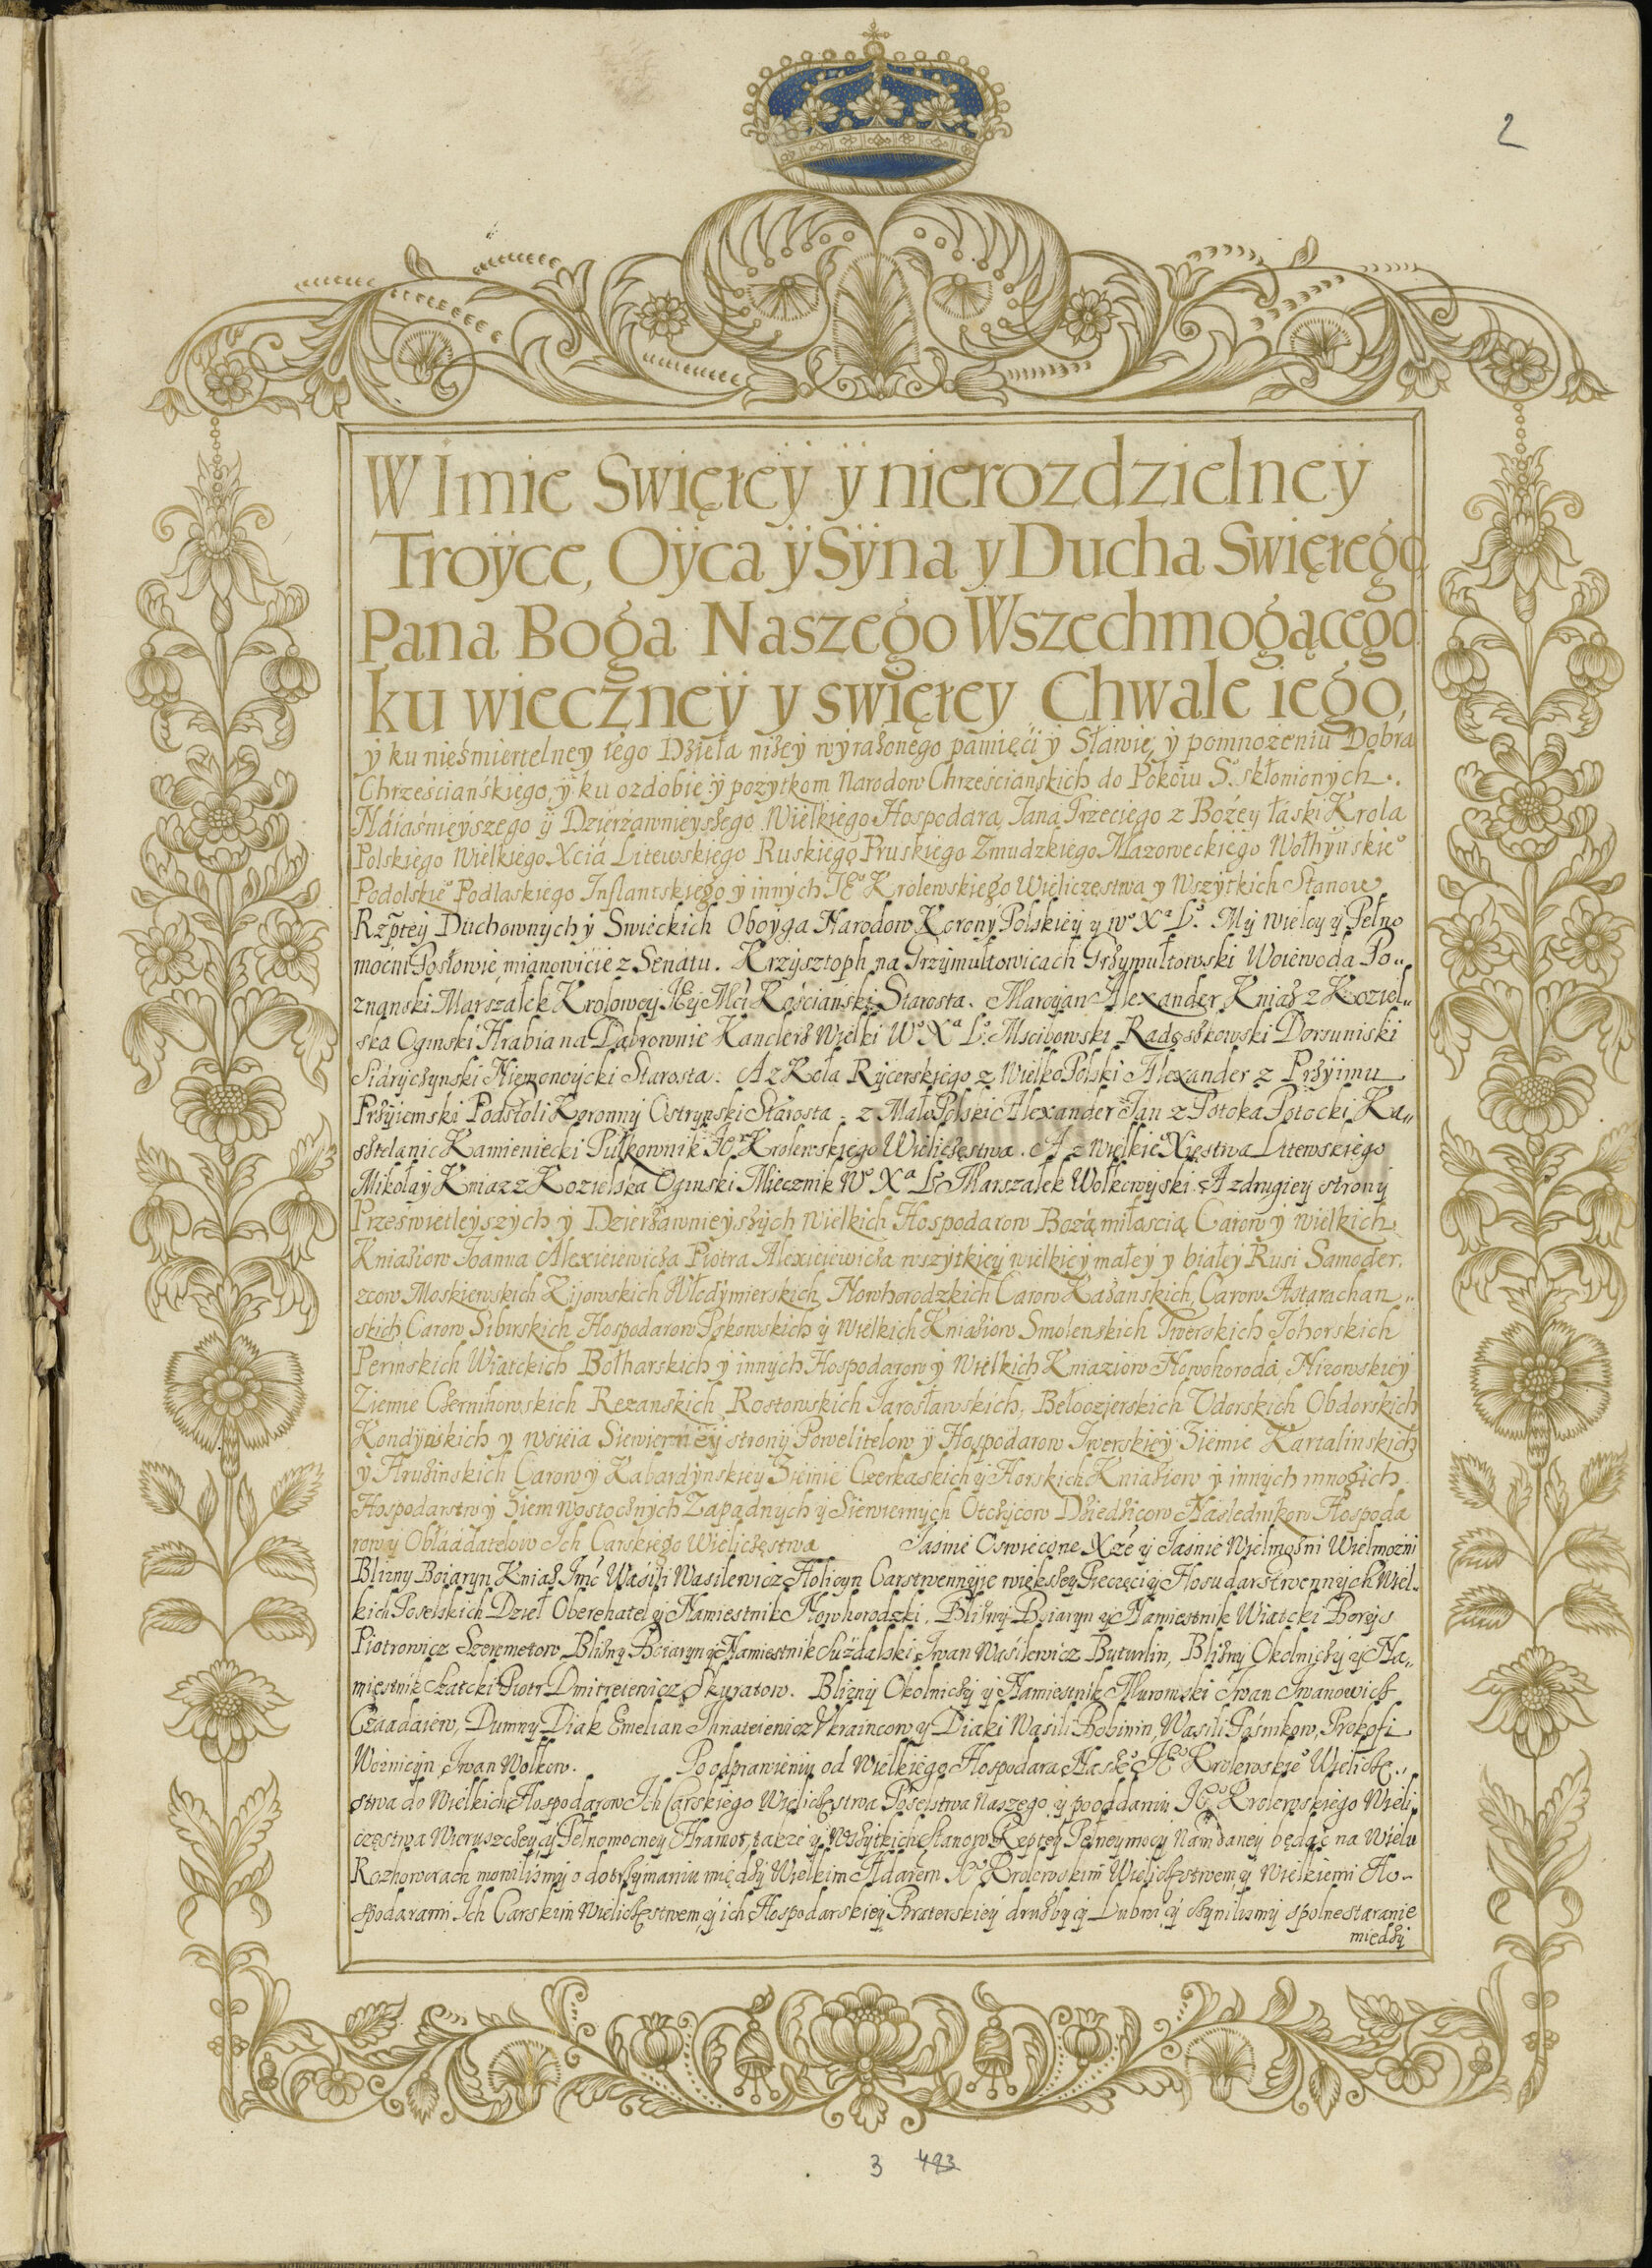 2
W Imie Swiętey ÿ nierozdzielneÿ
Troÿce, Oÿca ÿ Sÿna y Ducha Swiętego,
Pana Boga Naszego Wszechmogącego
ku wieczneÿ y swiętey Chwale iego,
y ku nieśmiertelney tego Dzieła niżey wyrażonego pamięci y Sławie, y pomnożeniu Dobra
Chrześciańskiego, ÿ ku ozdobie ÿ pożytkom Narodow Chrześcianskich do Pokoiu S. skłonionych.
Náiaśnieyszego ÿ Dzierżawnieyszego Wielkiego Hospodara, Jana Trzeciego z Bożey łaski Krola
Polskiego Wielkiego Xcia Litewskiego Ruskiego Pruskiego Zmudzkiego Mazoweckiego Wołhyńskieo
Podolskieo Podlaskiego Inflantskiego ÿ innych JEo Krolewskiego Wieliczęstwa y Wszytkich Stanow
Rzptey Duchownych ÿ Swieckich Oboyga Narodow Korony Polskiey y Wo Xa Lo. My wielcy y Pełno
mocni Posłowie mianowicie z Senatu. Krzysztoph na Grzymułtowicach Grzymułtowski Woiewoda Po„
znanski Marszałek Krolowey JEy Mci Kościański Starosta. Marcyan Alexander Kniaz z Koziel„
ska Oginski Hrabia na Dąbrownie Kanclerz Wielki Wo Xa Lo. Mscibowski Radoszkowski Dorsuniski
Sidryczynski Niemonoycki Starosta. A z Koła Rycerskiego z WielkoPolski Alexander z Przyimu
Przyiemski Podstoli Koronny Ostrzynski Starosta. z MałoPolski Alexander Jan z Potoka Potocki Ka„
sztelanic Kamieniecki Pułkownik Jo Krolewskiego Wieliczęstwa. A z Wielkieo Xięstwa Litewskiego
Mikołay Kniaz z Kozielska Oginski Miecznik Wo Xa Lo Marszałek Wołkowyski. A z drugiey strony
Przeswietleyszych ÿ Dzierżawnieyszych Wielkich Hospodarow Bożą miłoscią Carow y wielkich
Kniaziow Joanna Alexieiewicza Piotra Alexieiewicza wszytkiey wielkiey małey y białey Rusi Samoder.
zcow Moskiewskich Kijowskich Włodymierskich Nowhorodzkich Carow Kazanskich, Carow Astarachan„
skich, Carow Sibirskich Hospodarow Pskowskich ÿ Wielkich Kniaziow Smolenskich Twerskich Johorskich
Permskich Wiatckich Bołharskich ÿ innych Hospodarow ÿ Wielkich Kniaziow Nowohoroda Nizowskiey
Ziemie Czernihowskich Rezanskich Rostowskich Jarosławskich, Bełoozierskich Udorskich Obdorskich
Kondynskich y wsieia Siewierney strony Powelitelow ÿ Hospodarow Iwerskiey Ziemie Kartalinskich
ÿ Hruzinskich Carow ÿ Kabardynskiey Ziemie Czerkaskich ÿ Horskich Kniaziow ÿ innych mnogich
Hospodarstw ÿ Ziem wostocznych Zapadnych ÿ Siewiernych Otczycow Dziedzicow Nasiednikow Hospoda
row ÿ Obładatelow Ich Carskiego Wieliczęstwa Jasnie Oswiecone Xże ÿ Jasnie Wielmożni Wielmożni
Blizny Boiaryn Kniaz Jmć Wasili Wasilewicz Holicyn Carstwennyie większey Pieczęci ÿ Hosudarstwennych Wiel„
kich Poselskich Dzieł Oberehatel ÿ Namiestnik Nowhorodzki. Blizny Boiaryn ÿ Namiestnik Wiatcki Borys
Piotrowicz Szeremetow Blizny Boiaryn ÿ Namiestnik Suzdalski Iwan Wasilewicz Buturlin, Blizny Okolniczy ÿ Na„
miestnik Szatcki Piotr Dmitreiewicz Skuratow. Blizny Okolniczy ÿ Namiestnik Muromski Iwan Iwanowicz
Czaadaiew, Dumny Diak Emelian Ihnateiewicz Ukraincow y Diaki Wasili Bobinin, Wasili Pośnikow, Prokofi
Woznicyn Iwan Wołkow. Po odprawieniu od Wielkiego Hospodara Naszeo JEo Krolewskieo Wielicze„
stwa do Wielkich Hospodarow Ich Carskiego Wieliczęstwa Poselstwa Naszego, ÿ po oddaniu JEo Krolewskiego Wieli
częstwa Wieruszczey ÿ Pełnomocney Hramot, także ÿ Wszytkich Stanow Rzptey Pełney mocy Nam daney będąc na Wielu
Rozhoworach mowilismy o dotrzymaniu między Wielkim Hdarem Jo Krolewskim Wieliczęstwem, y Wielkiemi Ho-
spodarami Ich Carskim Wieliczęstwem, ÿ ich Hospodarskiey Braterskiey drużby ÿ Lubwi ÿ czynilismy spolne staranie
między
3 483